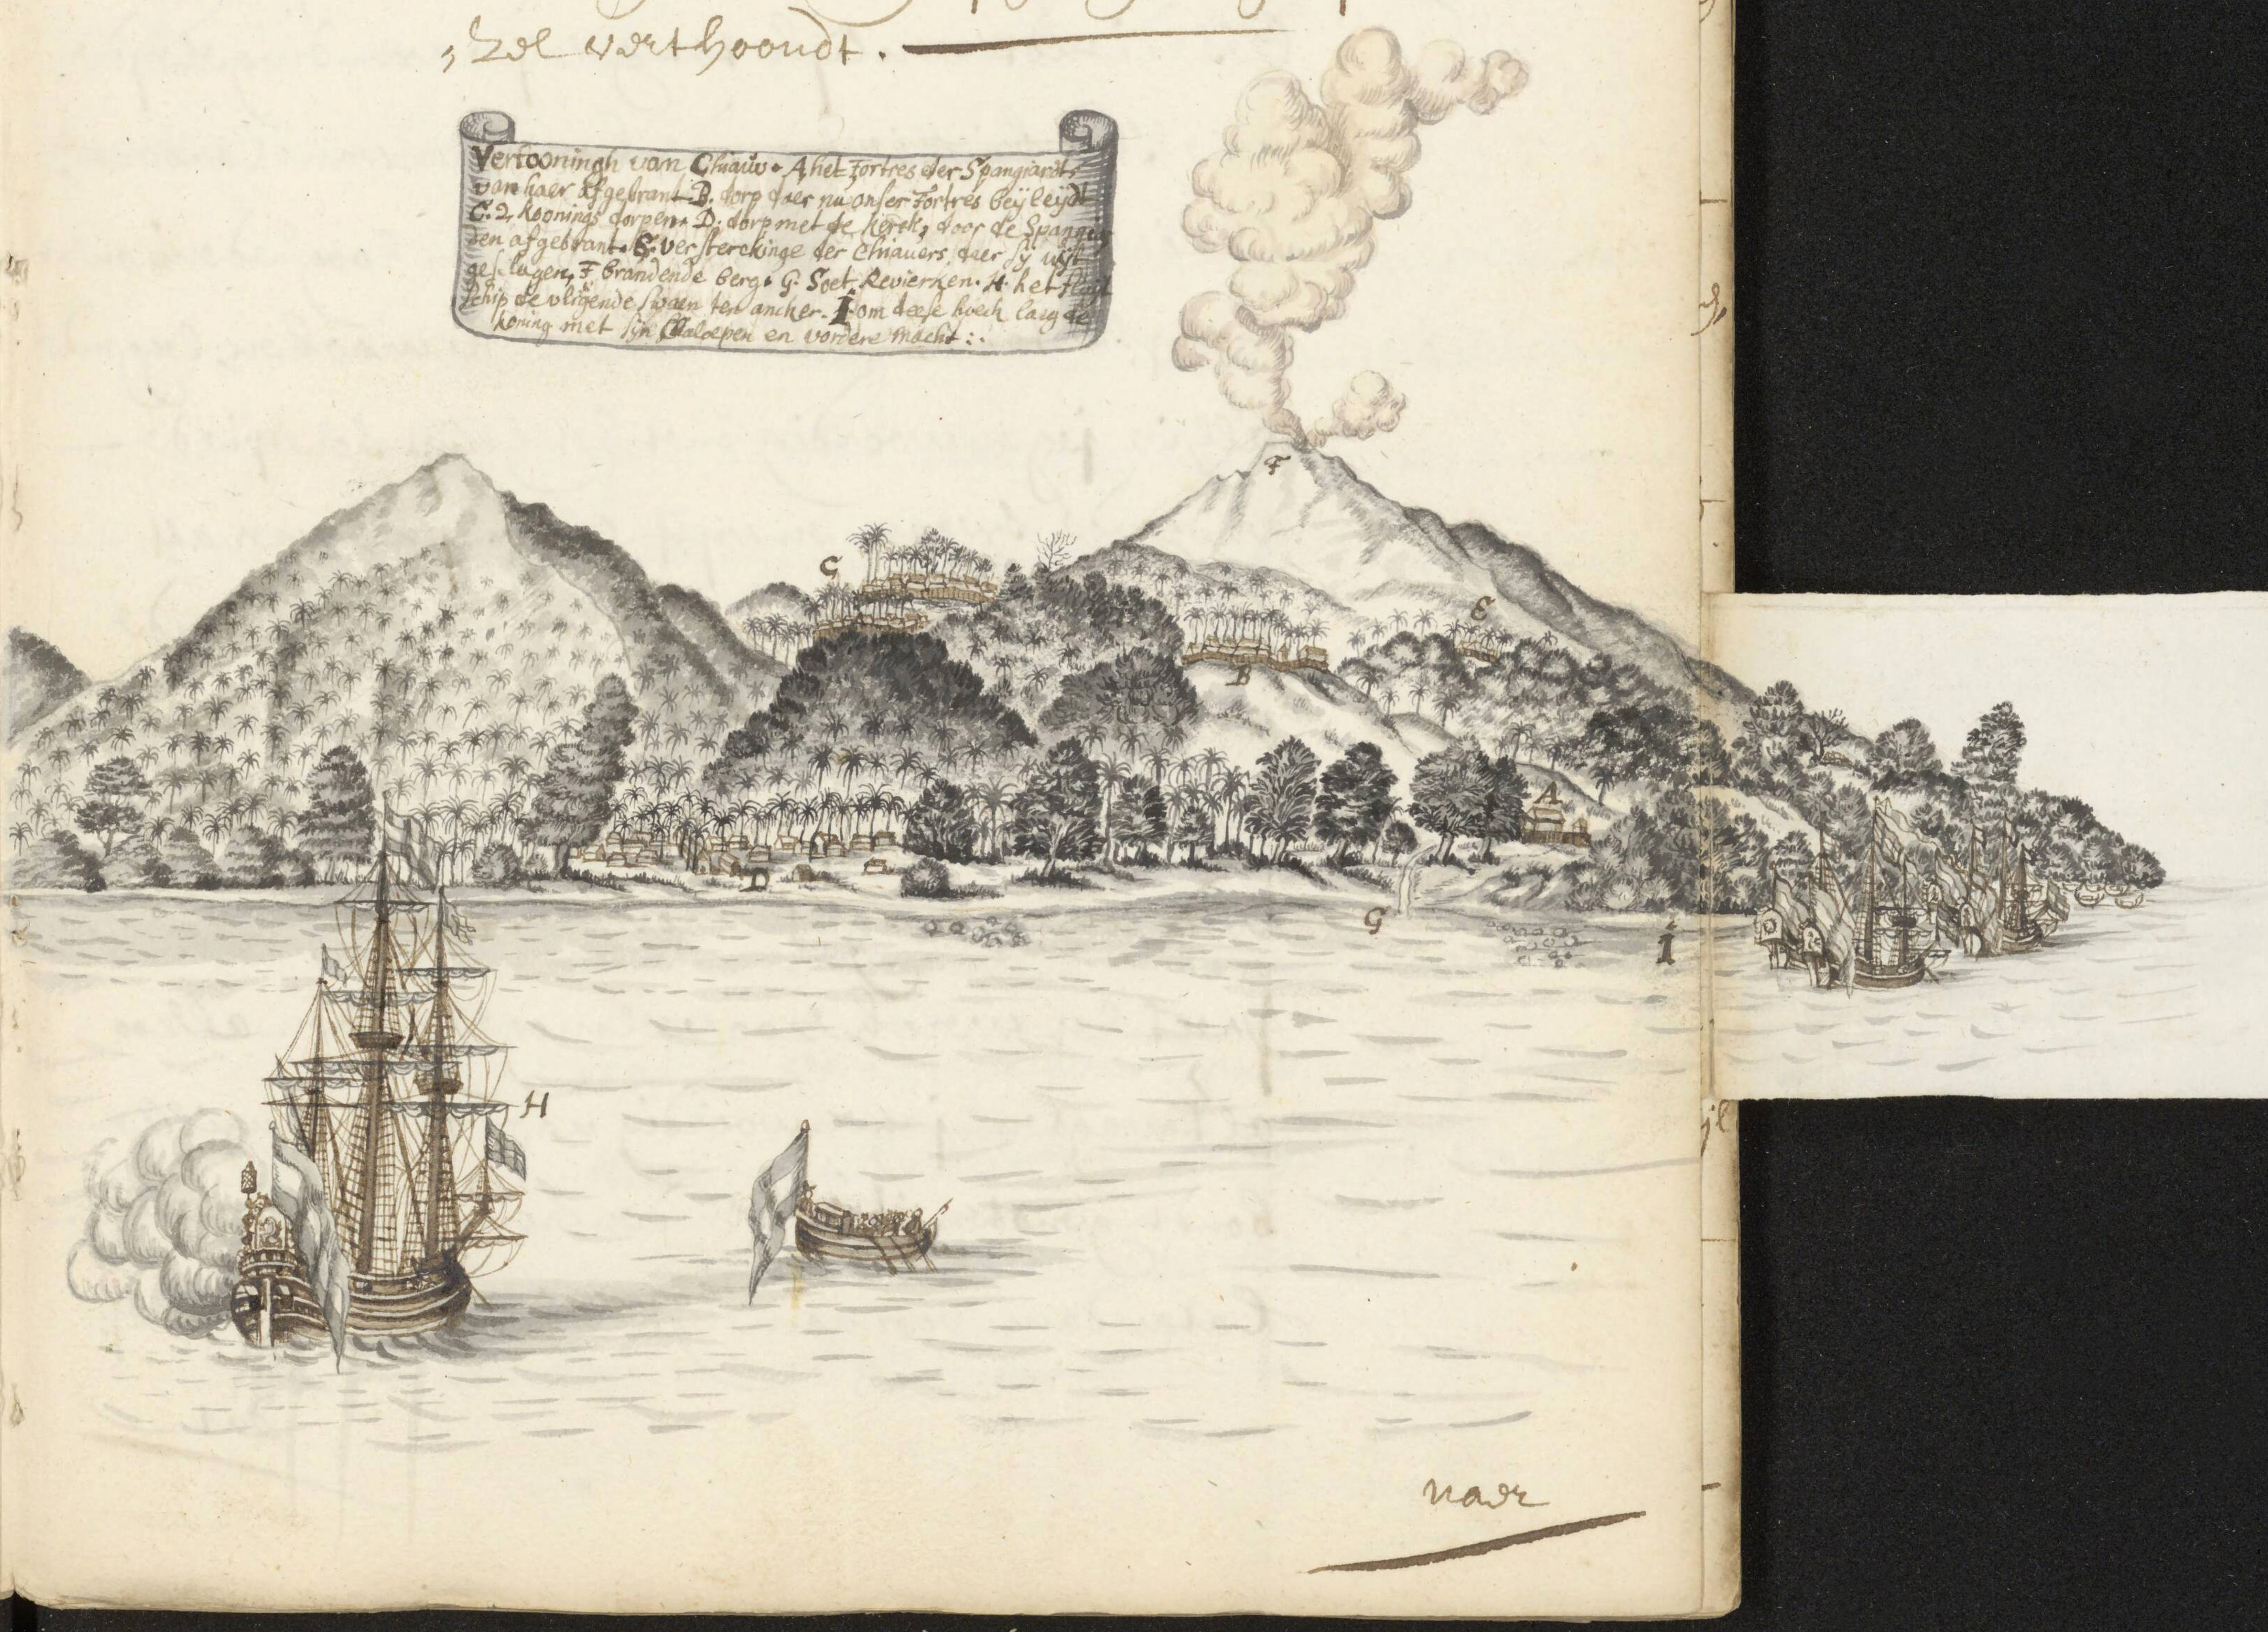 zel verthoondt.
Vertooningh van Chiauw. A het Fortres der Spangiardts
van haer afgebrant. B. dorp daer nu onser Fortres beij leijdt
C. 2. koonings dorpen. D. dorp met de kerck, door de Spangiar
den afgebrant. E. versterckinge der Chiauers, daer sy uijt
geslagen, F brandende berg. G. Soet Revierken. H. het fluijt
schip de vligende swaen ten ancker. I om deese hoech laig de
koning met sijn Chaloepen en vordere macht:.
F
C
E
B
A
D
G
I
H
naer